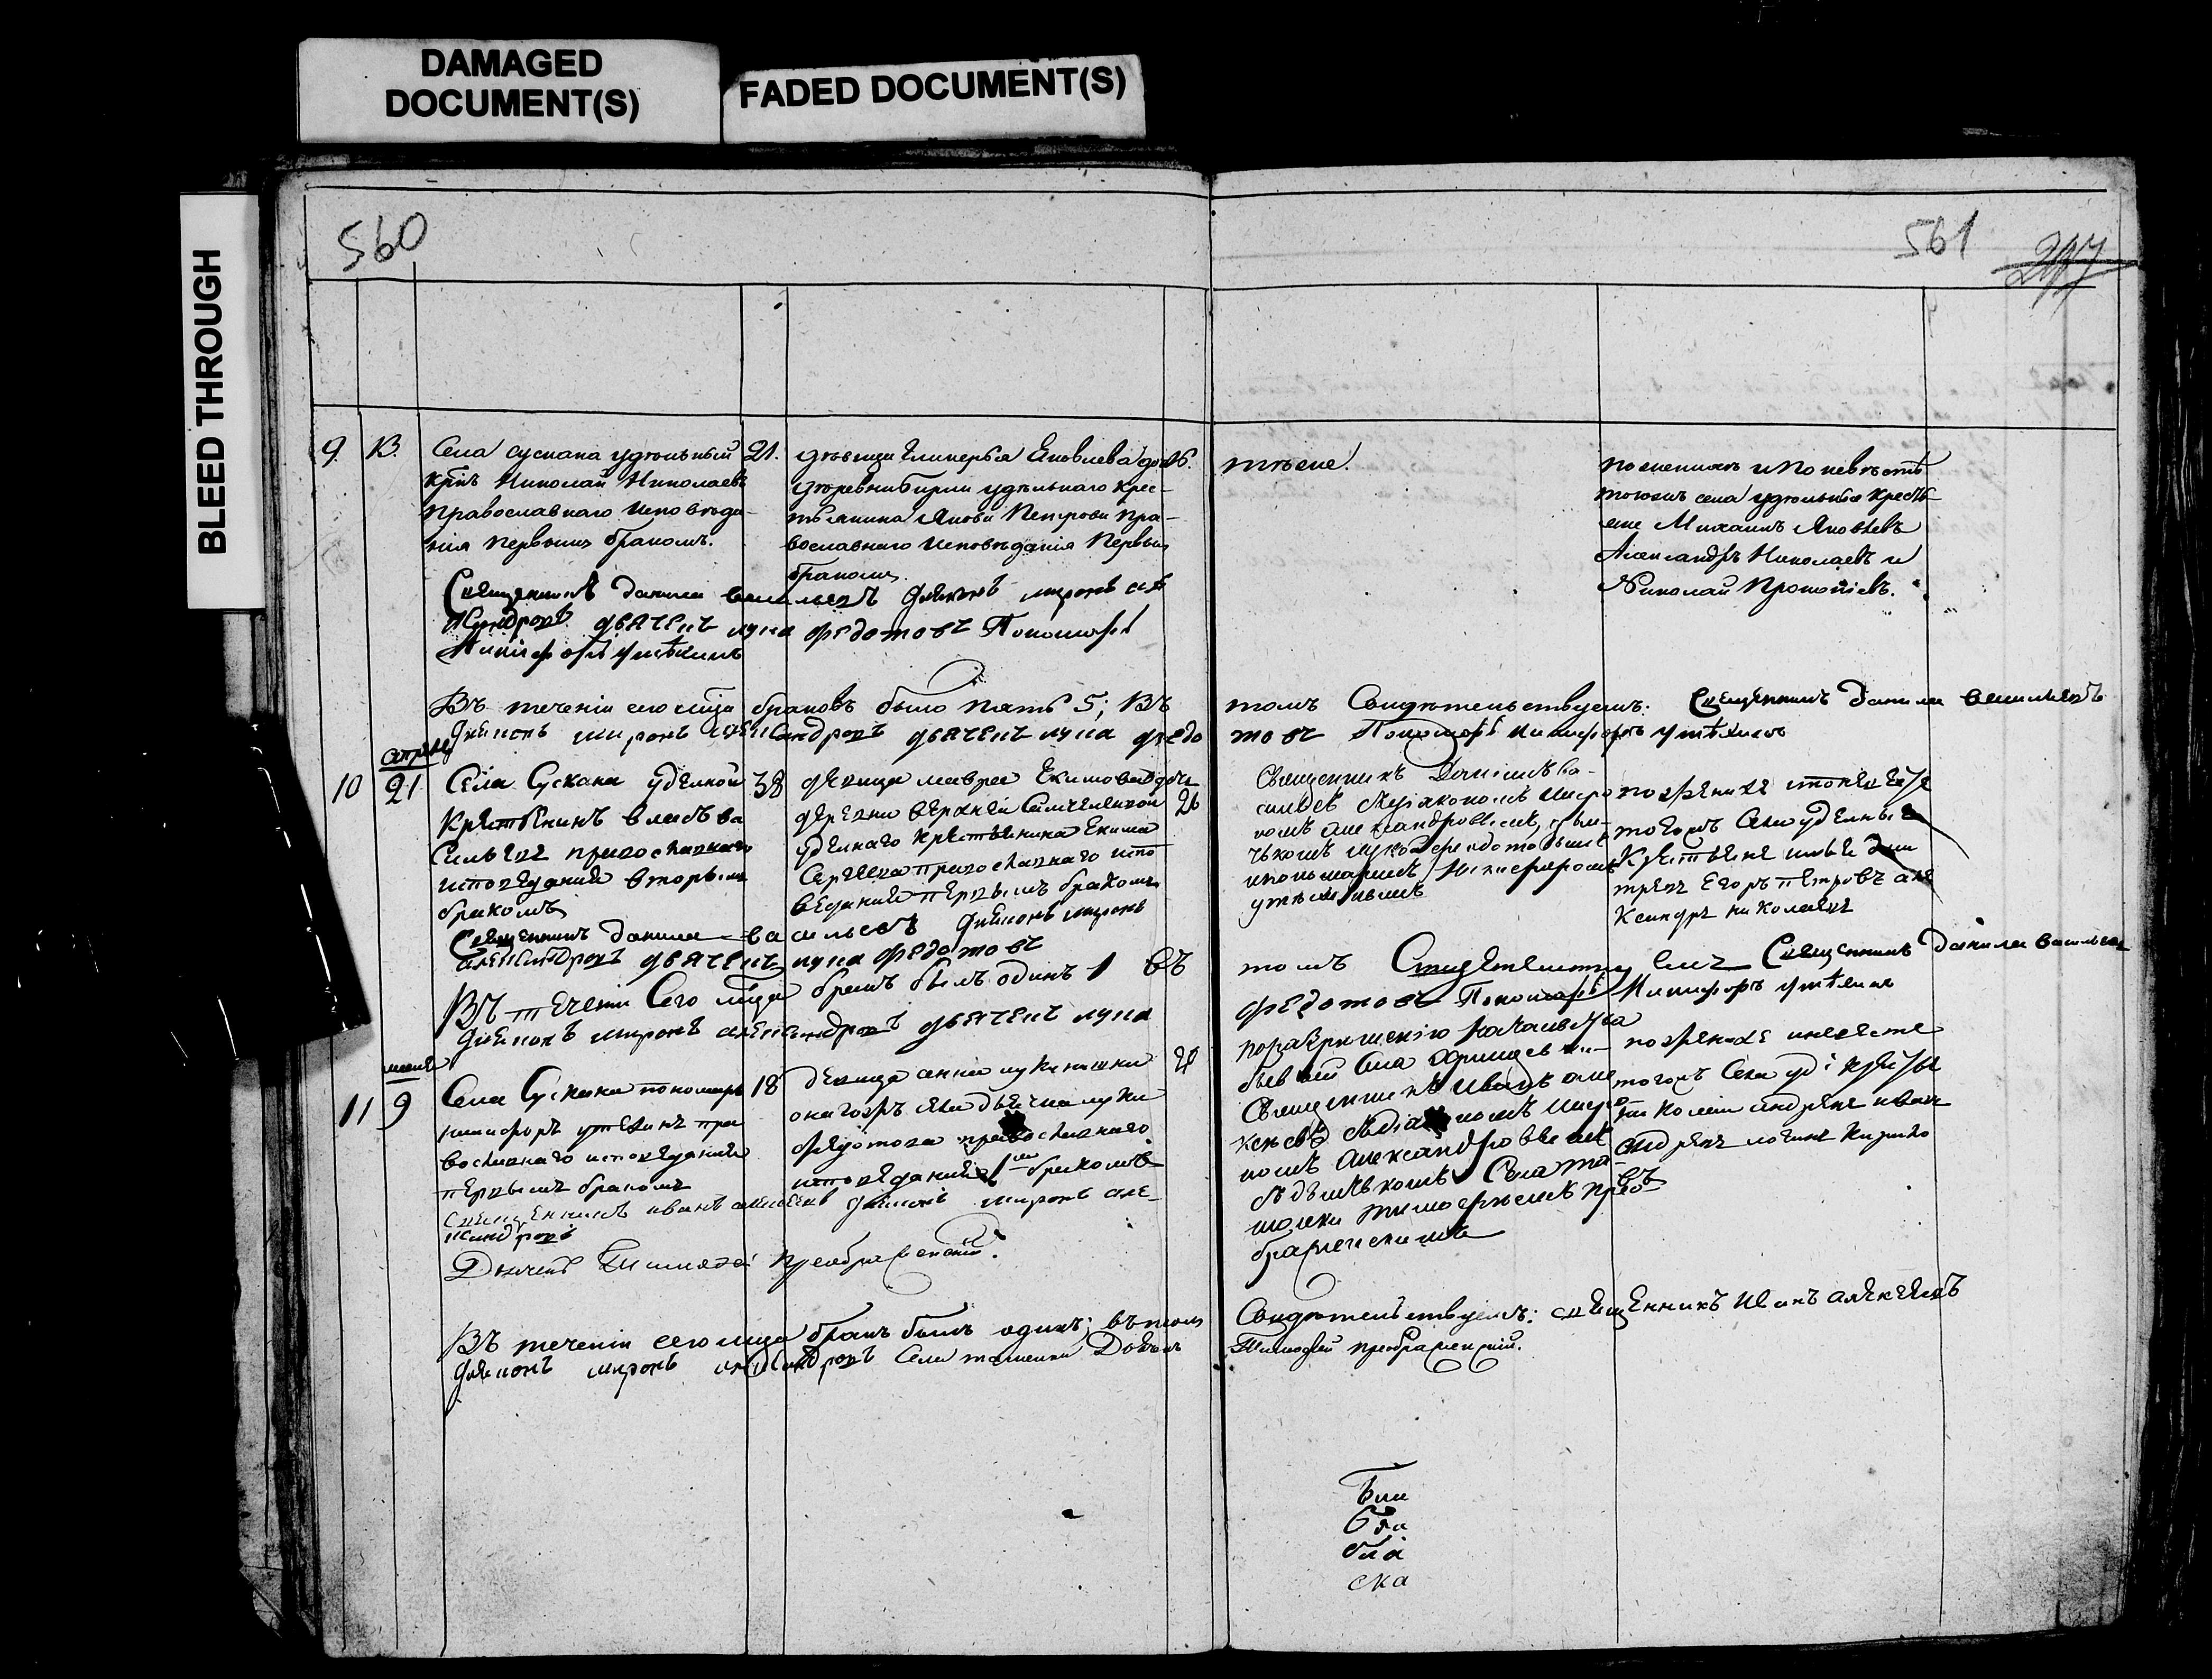 DAMAGED
DOCUMENT(S)
FADED DOCUMENT(S)
BLEED THROUGH
560
561
9. 13. Села Сускана удѣльный 21.
крⷭ҇тнъ Николай Николаевъ
православнаго исповѣда-
нія первымъ бракомъ.
дѣвица Гликерья Яковлева дочь
деревни Бирли удѣльнаго крес-
тьянина Якова Петрова пра-
вославнаго исповѣданія первымъ
бракомъ.
тѣже.
по женихѣ и по невѣстѣ
тогожъ села удѣльные кресть-
яне Михаилъ Яковлевъ
Александръ Николаевъ и
Николай Прокопіевъ.
Священникъ Данила Васильевъ Діяконъ Миронъ але
ксандровъ дьячекъ лука федотовъ Пономарь
Никифоръ утѣхинъ
Въ теченіи сего мѣсяца браковъ было пять 5; въ
томъ Свидѣтельствуемъ: Священникъ Данила Васильевъ
Діяконъ миронъ александровъ дьячекъ лука федо
товъ Пономарь Никифоръ утѣхинъ
апрель
10 21 Села Сускана уделной 38
Крестьенинъ власъ ва
сильевъ православнаго
исповедания вторымъ
бракомъ
девица мавра Екимова дочь 26
деревни верхней
уделнаго крестьенина Екима
Сергеева православнаго испо
ведания первымъ бракомъ
Священникъ Даніилъ Ва-
сильевъ съ діякономъ миро
номъ александровымъ, дья-
чькомъ лукой федотовымъ
и пономаремъ Никифоромъ
утѣхинымъ
по женихе и по невесте
тогожъ села уделные
Крестьене илья дми
тревъ Егоръ петровъ але
ксандръ николаевъ
Священникъ данила васильевъ Діяконъ миронъ
александровъ дьячекъ лука федотовъ
Въ течении Сего мѣсяца бракъ былъ одинъ 1 въ
томъ Свидетельствуемъ Священникъ данила васильевъ
Діяконъ миронъ александровъ дьячекъ лука
федотовъ Пономарь Никифоръ утѣхинъ
11 9 Села Сускана пономарь 18
никифоръ утехинъ пра
вославнаго исповедания
первымъ бракомъ
девица анна лукинишна
онагожъ села дьячка луки
федотова православнаго
исповедания 1мъ бракомъ
по разрѣшенію начальства
Священникъ Иванъ але
ксѣевъ съ діякономъ миро
номъ александровымъ
съ дьячькомъ Села Та-
шолки Тимофѣемъ прео
браженскимъ
по женихе и невесте
тогожъ Села
николай андреевъ иванъ
андреевъ логинъ
Священникъ иванъ алексеевъ Діяконъ миронъ але-
ксандровъ
Дьячекъ Тимофей преображенскій.
Въ теченіи сего мѣсяца бракъ былъ одинъ; въ томъ
Свидѣтельствуемъ: священникъ Иванъ алексеевъ
Діяконъ миронъ александровъ Села ташелки Дьячекъ
Тимофей преображенскій.
ска